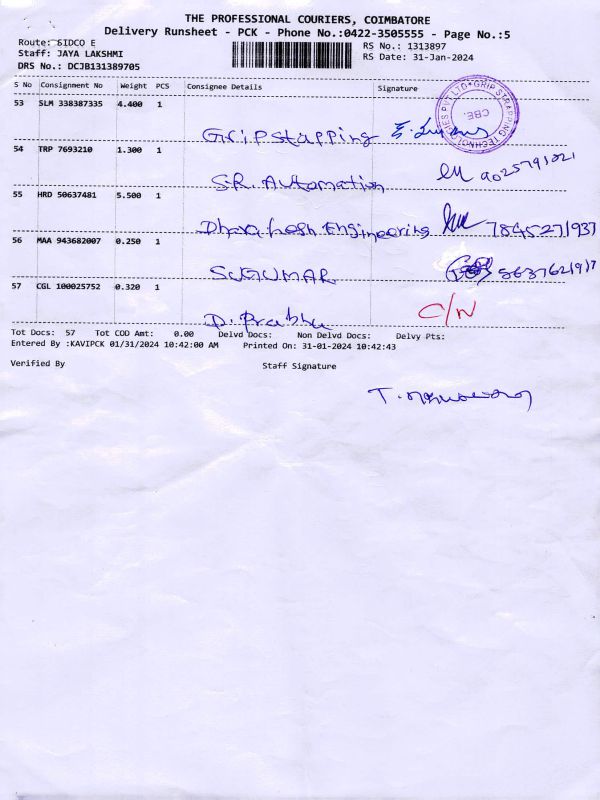 THE PROFESSIONAL COURIERS, COIMBATORE
Delivery Runsheet - PCK - Phone No.:0422-3505555 - Page No.:5
Route: SIDCO E
RS No.: 1313897
Staff: JAYA LAKSHMI
RS Date: 31-Jan-2024
DRS No.: DCJB131389705
S No Consignment No Weight PCS Consignee Details Signature
53 SLM 338387335 4.400 1
GRIP STRAPPING TECHNOLOGIES PVT LTD
CBE
Gripstapping
54 TRP 7693210 1.300 1
S.R. Automation
55 HRD 50637481 5.500 1
Engineering 7845271937
56 MAA 943682007 0.250 1
SUGUMAR
57 CGL 100025752 0.320 1
D. Prabhu C/N
Tot Docs: 57 Tot COD Amt: 0.00 Delvd Docs: Non Delvd Docs: Delvy Pts:
Entered By :KAVIPCK 01/31/2024 10:42:00 AM Printed On: 31-01-2024 10:42:43
Verified By Staff Signature